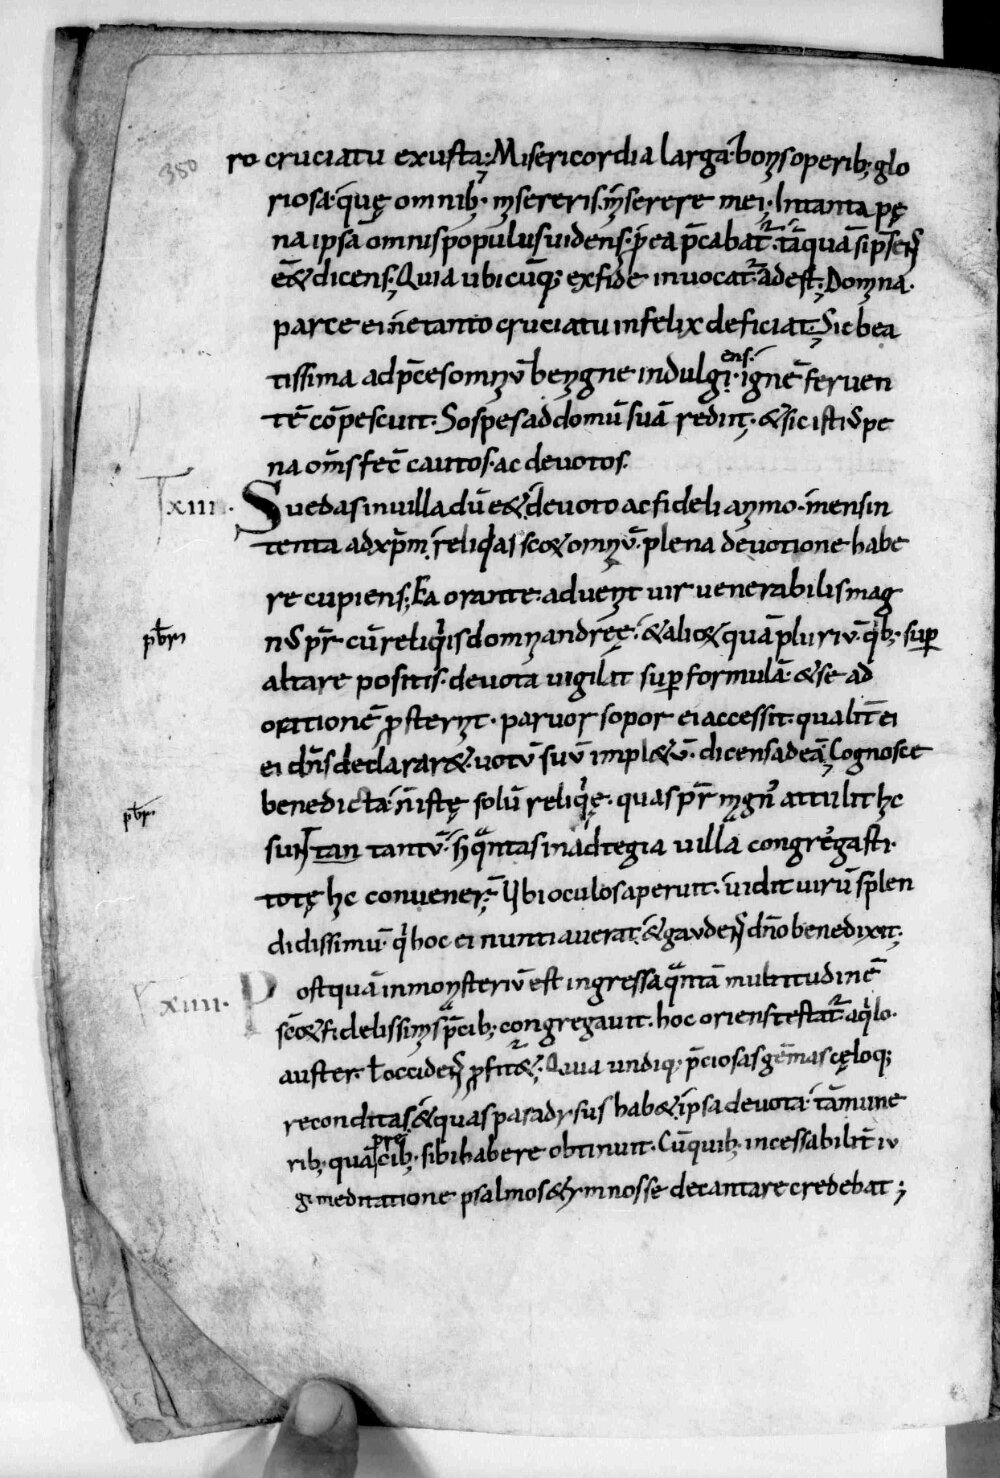 380
ro cruciatu exusta; Misericordia larga· bonis operib; glo
riosa· quę omnib;· misereris· miserere mei· In tanta pę
na ipsā omnis populus uidens· p ea p̄cabat̃· tāquā si p̄sen̄
ēet dicens; Quia ubicūq; ex fide inuocat̃ adest; Domna·
parce ei ne tanto cruciatu infelix deficiat; Sic bea
tissima ad p̄ces omniū benigne indulgens· ignē feruen
tē cōpescuit· Sospes ad domū suā rediit· et sic istius pe
na om̄s fec̄ cautos· ac deuotos·
xiii· Suedas in uilla dū eēt deuoto ac fideli animo· mens in
tenta ad xp̄m· reliquias sc̄o et omniū· plena deuotione habe
re cupiens; Ea orante· aduenit uir uenerabilis mag
pbr̄ nus pr̄ cū reliquiis domni andreę· et alio et quā plurium· quib;· sup
altare positis· deuota uigiliit sup formulā· et se ad
orationē psternit· paruor sopor ei accessit· qualit̄ ei
ei dn̄s declararet· uotū suū impletū· dicens ad eā; Cognosce
benedicta· n̄ istę solū reliquię· quas pr̄ mgn̄ attulit hc
pbr̄
sunt tan tantū· s; quantas in adtegia uilla congregasti·
totę hc conuener̄; Ubi oculos aperuit· uidit uirū splen
didissimū· qui hoc ei nuntiauerat· et gauden̄ dn̄o benedixit;
xiiii· Postquā in monisteriū est ingressa quantā multitudinē
sc̄o et fidelissimis p̄cib; congregauit· hoc oriens testat̃ aqilo·
auster· ł occiden̄ pfitet̃· Quia undiq; p̄ciosas gēmas cęloq;
reconditas· et quas paradysus habet ipsa deuota· tā mune
rib; quā precib; sibi habere obtinuit· Cū quib; incessabilit̄ iu
gi meditatione psalmos et ymnos se decantare credebat;